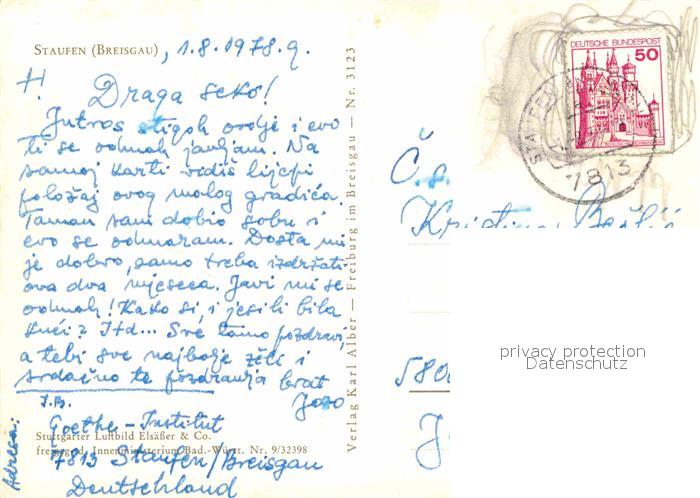 STAUFEN (BREISGAU), 1.8.1978.g.
Draga seko!
Jutros stigoh ovdje i evo
ti se odmah javljam. Na
samoj karti vidiš lijepi
položaj ovog malog gradića.
Taman sam dobio sobu i
evo se odmaram. Dosta mi
je dobro, samo treba izdržati
ova dva mjeseca. Javi mi se
odmah! Kako si, i jesili bila
kući? Itd... Sve tamo pozdravi
a tebi sve najbolje želi i
srdačno te pozdravlja brat
Jozo
J.B.
Adresa:
Goethe-Institut
7813 Staufen/Breisgau
Deutschland
Stuttgarter Luftbild Elsäßer & Co.
freigegd. Innenministerium Bad.-Württ. Nr. 9/32398
Verlag Karl Alber — Freiburg im Breisgau — Nr. 3123
DEUTSCHE BUNDESPOST
50
STAUFEN
7813
Č.s.
Kristina Bešlić
580
privacy protection
Datenschutz